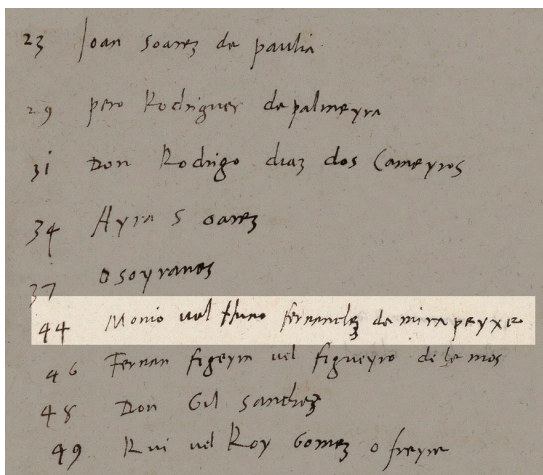 23 Joan Soarez de paulia
29 pero Rodriguez de palmeyra
31 Don Rodrigo diaz dos Cameyros
34 Ayra Soarez
37 Osoyranes
44 Monio vel Nuno fernandez de mirapeyxe
46 Fernan figeyra vel figueyro de lemos
48 Don Gil Sanchez
49 Rui vel Roy Gomez o freyre